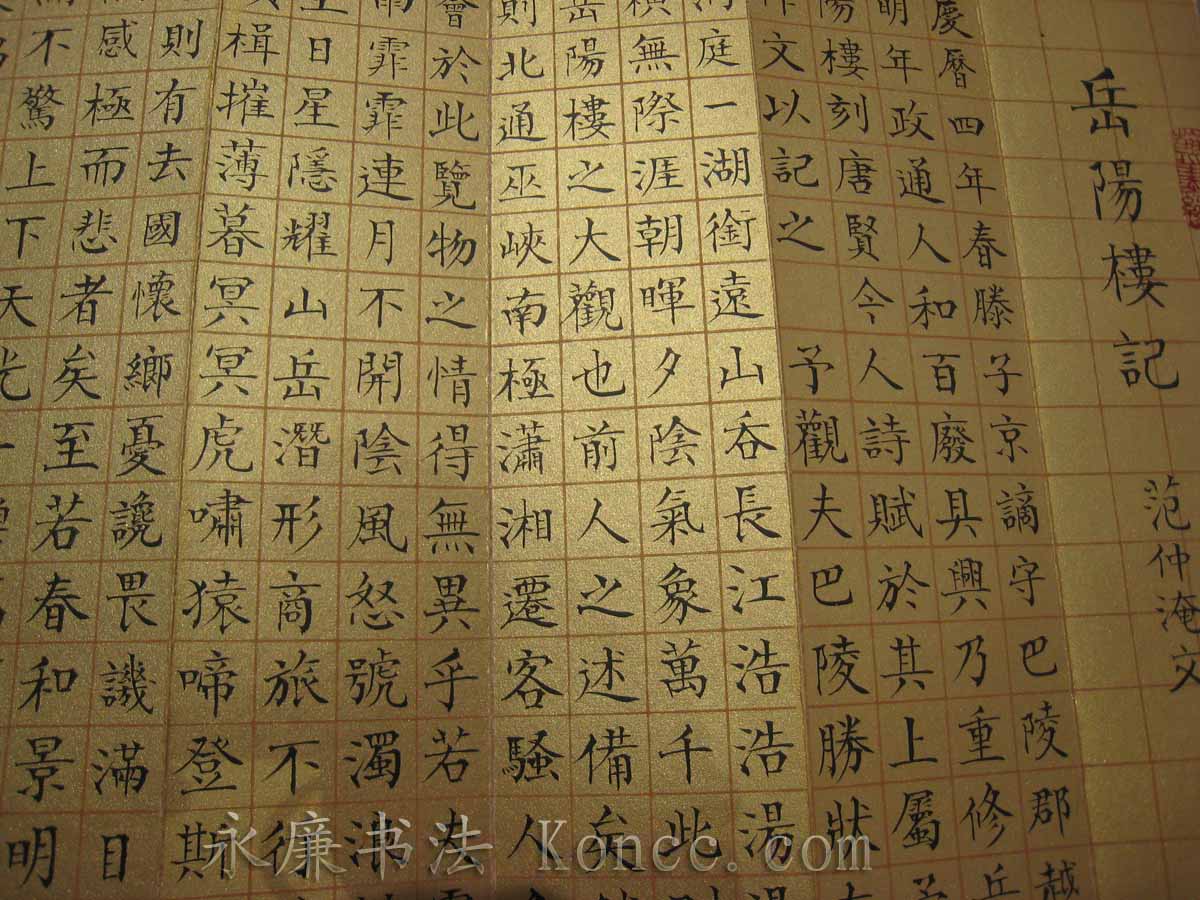 岳陽樓記
范仲淹文
慶曆四年春滕子京謫守巴陵郡越
明年政通人和百廢具興乃重修岳
陽樓刻唐賢今人詩賦於其上屬予
作文以記之 予觀夫巴陵勝狀在
洞庭一湖銜遠山吞長江浩浩湯湯
橫無際涯朝暉夕陰氣象萬千此則
岳陽樓之大觀也前人之述備矣
則北通巫峽南極瀟湘遷客騷人
會於此覽物之情得無異乎若夫
雨霏霏連月不開陰風怒號濁浪
日星隱耀山岳潛形商旅不行
楫摧薄暮冥冥虎嘯猿啼登斯
則有去國懷鄉憂讒畏譏滿目
感極而悲者矣至若春和景明
不驚上下天光一
永廉书法 Koncc.com